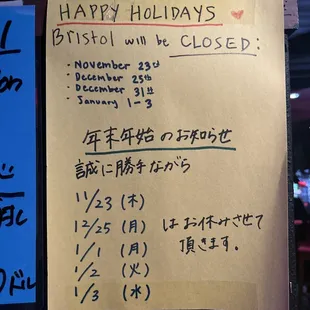 HAPPY HOLIDAYS
Bristol will be CLOSED:
- November 23rd
- December 25th
- December 31st
- January 1-3
年末年始のお知らせ
誠に勝手ながら
11/23 (木)
12/25 (月)
1/1 (月)
1/2 (火)
1/3 (水)
はお休みさせて
頂きます。
ドル